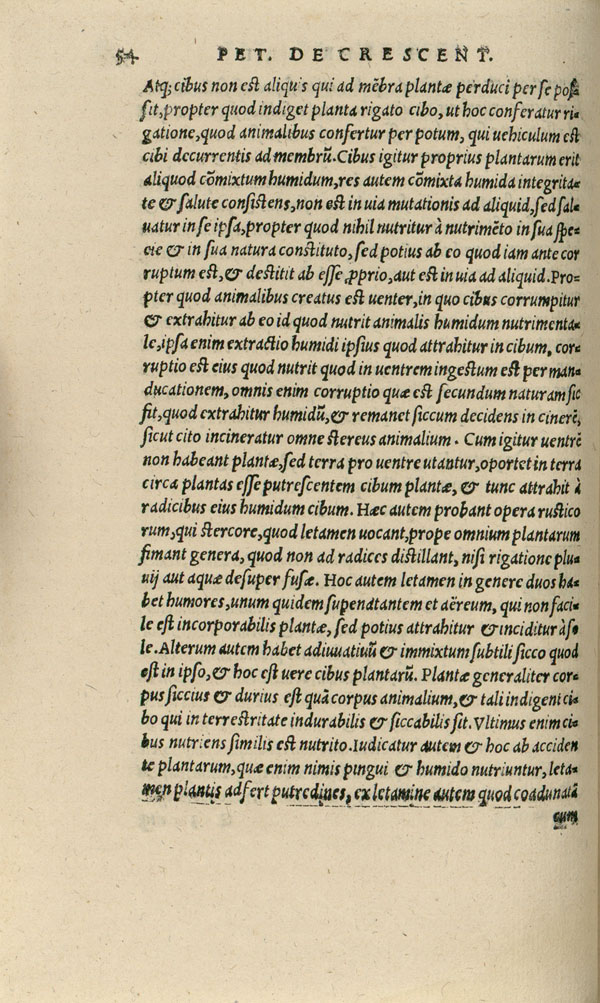 54
PET. DE CRESCENT.
Atq; cibus non est aliquis qui ad mẽbra plantæ perduci per se pos
sit, propter quod indiget planta rigato cibo, ut hoc conferatur ri-
gatione, quod animalibus confertur per potum, qui uehiculum est
cibi decurrentis ad membrũ. Cibus igitur proprius plantarum erit
aliquod cõmixtum humidum, res autem cõmixta humida integrita-
te & salute consistens, non est in uia mutationis ad aliquid, sed sal-
uatur in se ipsa, propter quod nihil nutritur à nutrimẽto in sua spe-
cie & in sua natura constituto, sed potius ab eo quod iam ante cor
ruptum est, & destitit ab esse ꝓprio, aut est in uia ad aliquid. Pro-
pter quod animalibus creatus est uenter, in quo cibus corrumpitur
& extrahitur ab eo id quod nutrit animalis humidum nutrimenta-
le, ipsa enim extractio humidi ipsius quod attrahitur in cibum, cor-
ruptio est eius quod nutrit quod in uentrem ingestum est per man-
ducationem, omnis enim corruptio quæ est secundum naturam sic
fit, quod extrahitur humidũ, & remanet siccum decidens in cinerẽ,
sicut cito incineratur omne stereus animalium. Cum igitur uentrẽ
non habeant plantæ, sed terra pro uentre utantur, oportet in terra
circa plantas esse putrescentem cibum plantæ, & tunc attrahit à
radicibus eius humidum cibum. Hæc autem probant opera rustico
rum, qui stercore, quod letamen uocant, prope omnium plantarum
fimant genera, quod non ad radices distillant, nisi rigatione plu-
uij aut aquæ desuper fusæ. Hoc autem letamen in genere duos ha-
bet humores, unum quidem supenatantem et aëreum, qui non faci-
le est incorporabilis plantæ, sed potius attrahitur & inciditur à so
le. Alterum autem habet adiuuatiuũ & immixtum subtili sicco quod
est in ipso, & hoc est uere cibus plantarũ. Plantæ generaliter cor-
pus siccius & durius est quã corpus animalium, & tali indigent ci-
bo qui in terrestritate indurabilis & siccabilis sit. Vltimus enim ci-
bus nutriens similis est nutrito. Iudicatur autem & hoc ab acciden
te plantarum, quæ enim nimis pingui & humido nutriuntur, leta-
men plantis adfert putredines, ex letamine autem quod coadunatã
cum